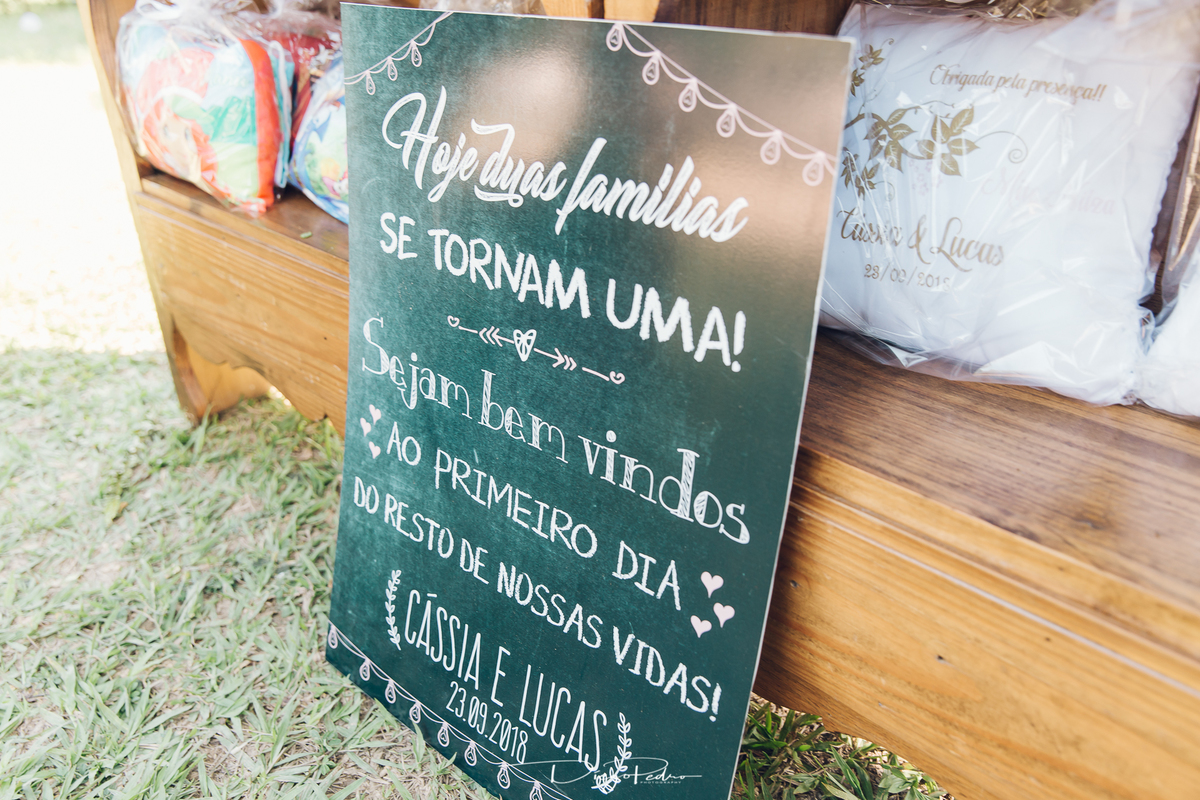 Hoje duas famílias
SE TORNAM UMA!
Sejam bem vindos
AO PRIMEIRO DIA
DO RESTO DE NOSSAS VIDAS!
CÁSSIA E LUCAS
23.09.2018
Obrigada pela presença!!
Cássia & Lucas
23/09/2018
Pedro
PHOTOGRAPHY